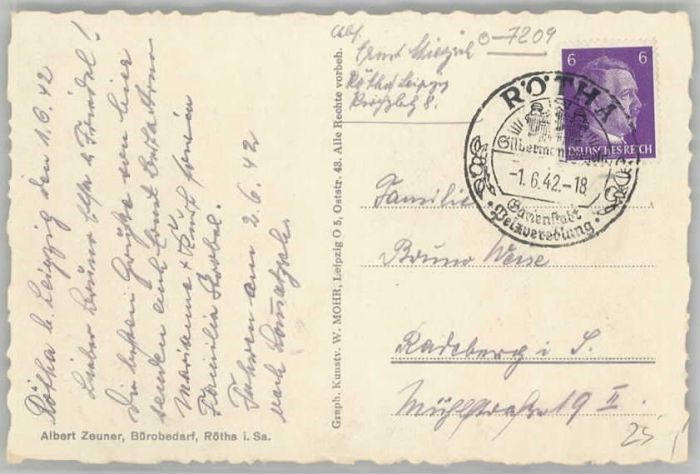 Rötha b. Leipzig den 1.6.42
Lieber Bruno, Elsa & Friedel!
Die besten Grüße von hier
senden euch Ernst
Marianne + Kurt sowie
Familie
Fahren am 2.6.42
nach
Albert Zeuner, Bürobedarf, Rötha i. Sa.
Graph. Kunstv. W. MOHR, Leipzig O 5, Oststr. 48. Alle Rechte vorbeh.
Abs.
Ernst
Rötha Leipzg
8.
0-7209
6 6
DEUTSCHES REICH
RÖTHA
Silbermann
-1.6.42.-18
Gartenstadt
Pelzveredlung
Familie
Bruno Weise
Radeberg i. S.
Mühlstraße 19 II.
25,-